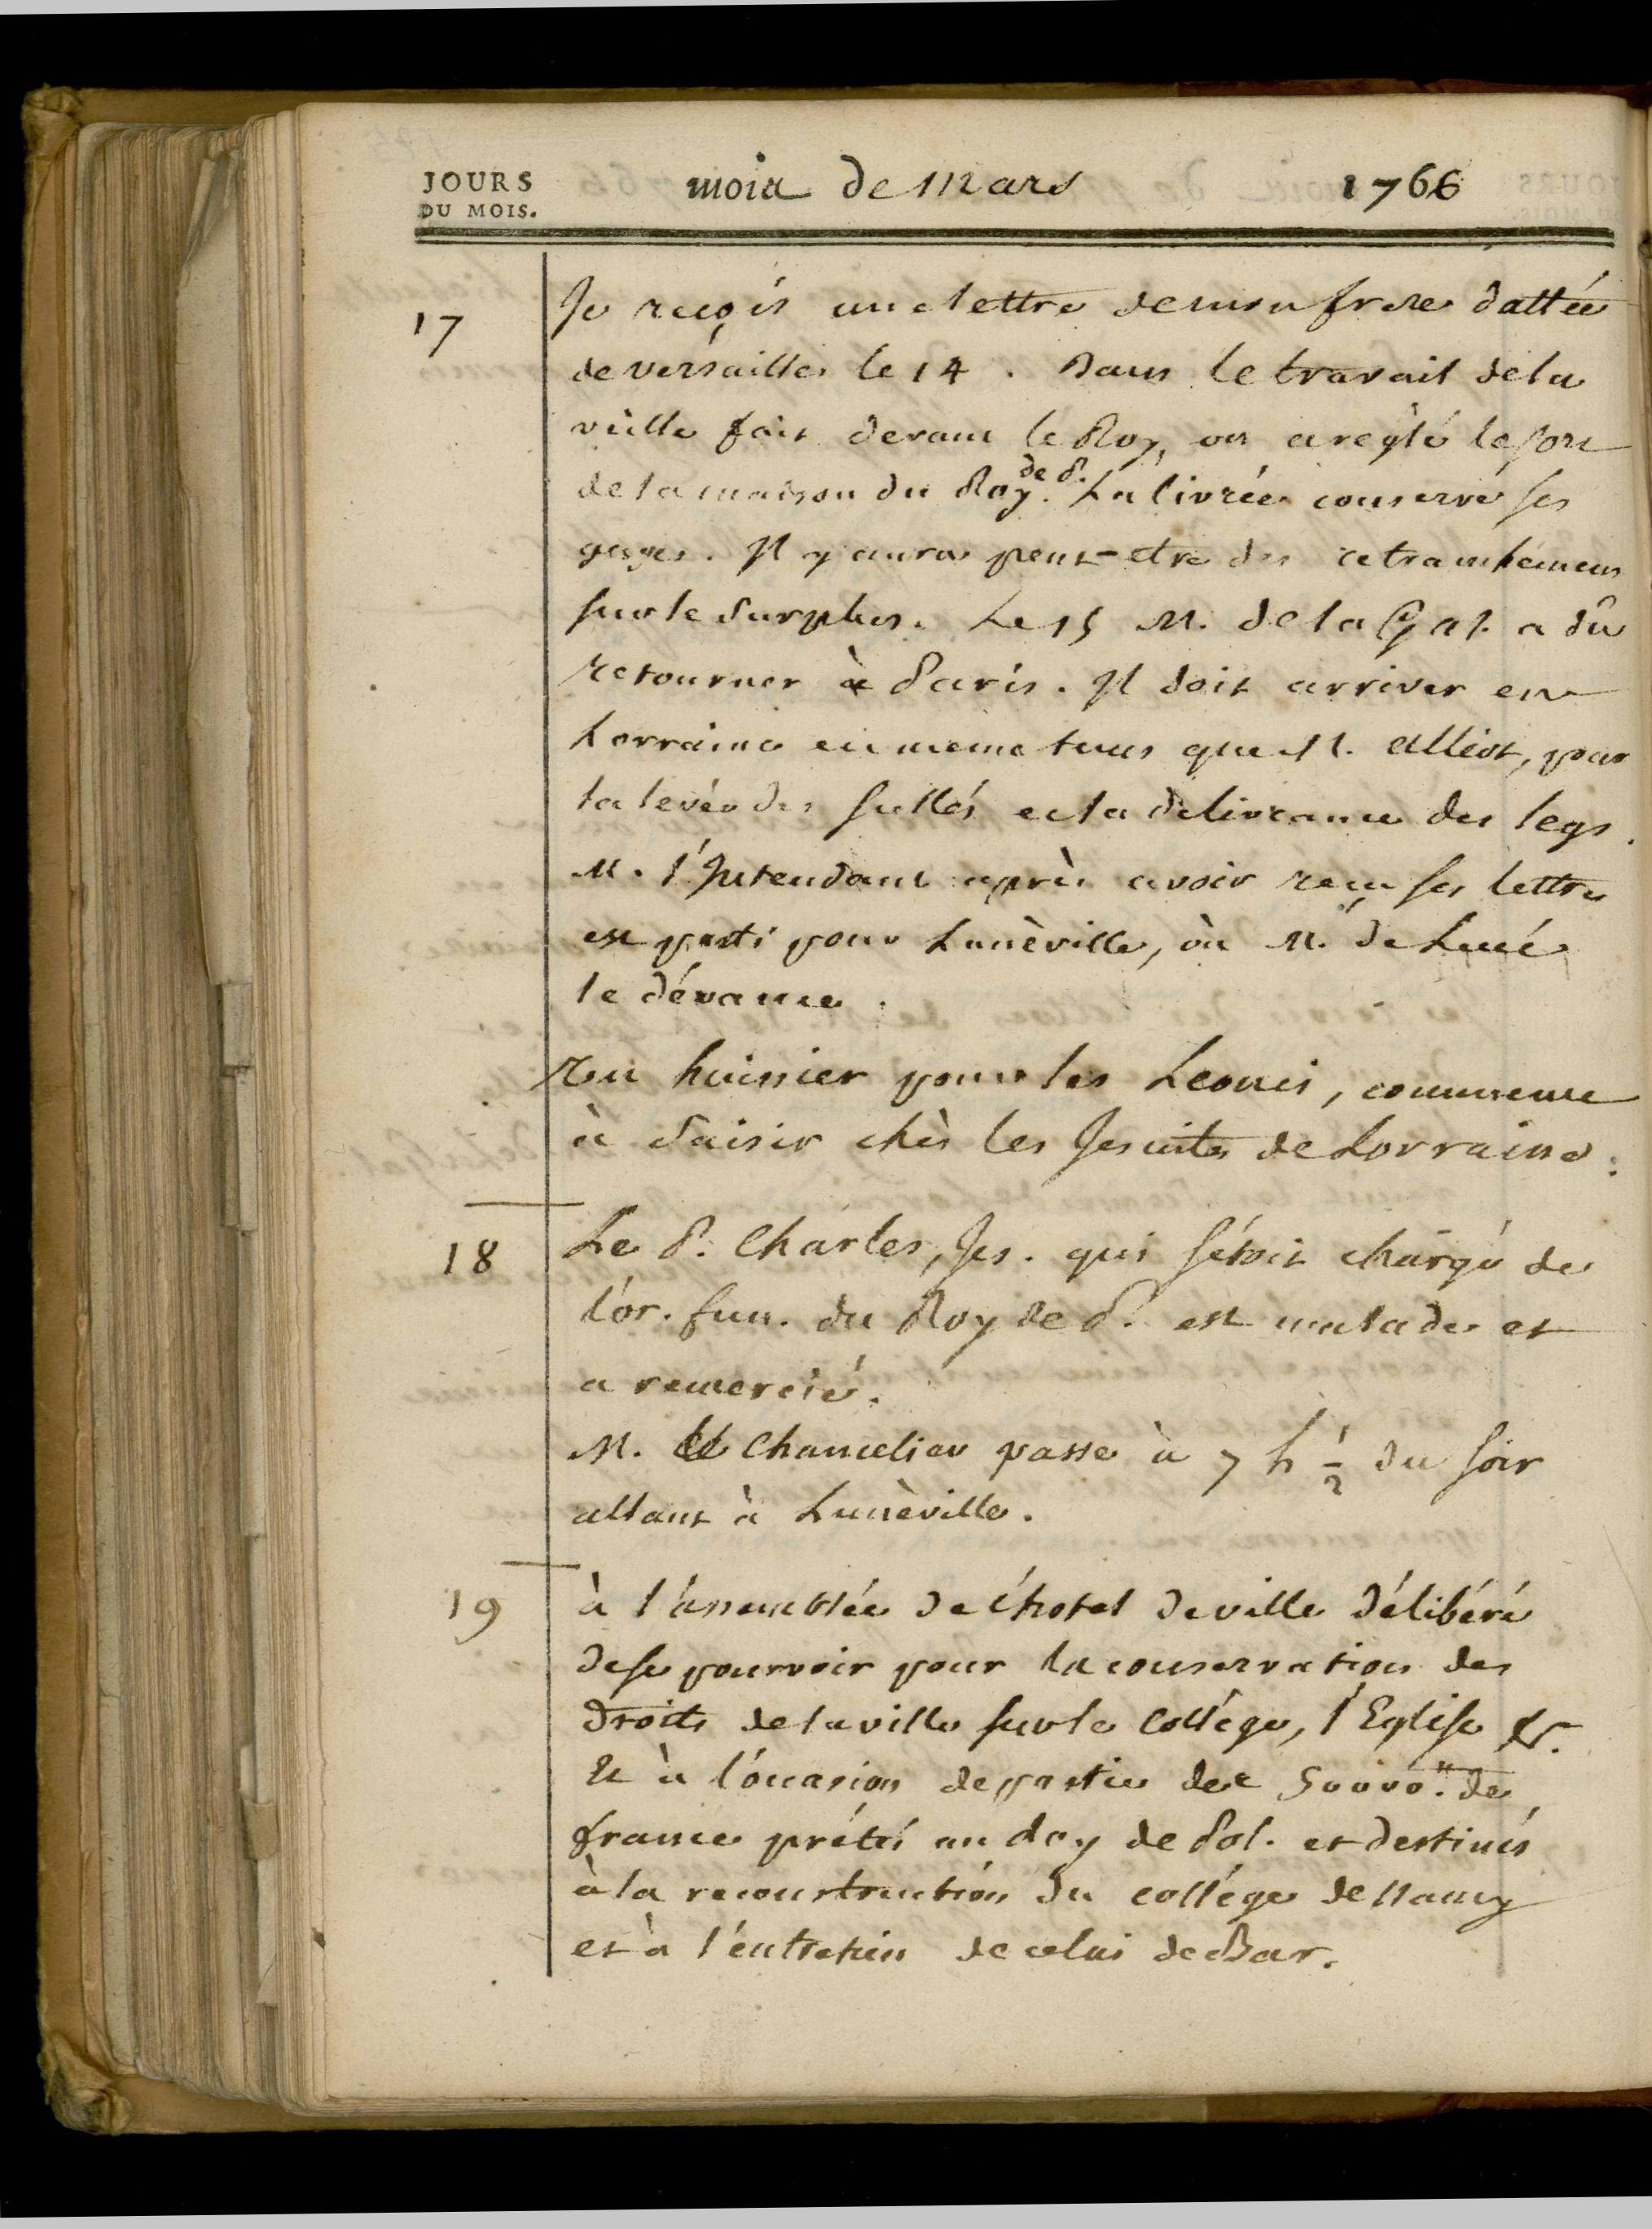 JOURS
DU MOIS.
mois de Mars 1766
17
Je reçois une lettre de mon frere dattée
de versailles le 14. Dans le travail de la
veille fait devant le Roy, on a reglé le sort
de la maison du Roy de P. La livrée conserve ses
gages. Il y aura peut-etre des retranchemens
sur le surplus. Le 15 M. de la Gal. a dû
retourner à Paris. Il doit arriver en
Lorraine en meme tems que M. Alliot, pour
la levée des scellés et la delivrance des legs.
M. l'Intendant après avoir reçu ses lettres
est parti pour Lunèville, où M. de Lucé
le dévance.
Un huissier pour les Leonci, commence
à saisir chès les Jesuites de Lorraine.
18
Le P. Charles, Jes. qui s'étoit chargé de
l'or. fun. du Roy de P. est malade et
a remercié.
M. le Chancelier passe à 7 h ½ du soir
allant à Lunèville.
19
à l'assemblée de l'hotel de ville délibéré
de se pourvoir pour la conservation des
droits de la ville sur le Collége, l'Eglise &c.
Et à l'occasion de partie des 50000.# de
france prétés au Roy de Pol. et destinés
à la reconstruction du collége de Nancy
et à l'entretien de celui de Bar.